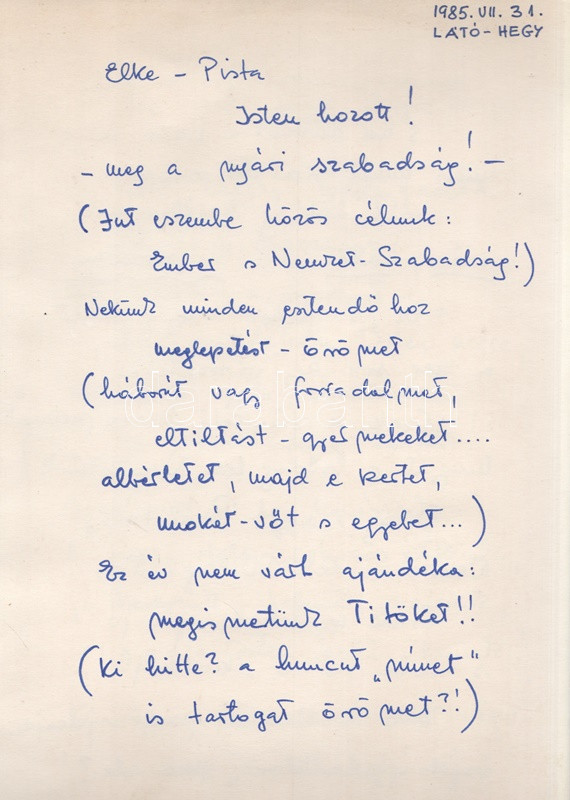 1985. VII. 31.
LÁTÓ-HEGY
Elke - Pista
Isten hozott!
- meg a nyári szabadság! -
(Jut eszembe közös célunk:
Ember s Nemzet-Szabadság!)
Nekünk minden esztendő hoz
meglepetést - örömet
(háborút vagy forradalmat,
eltiltást - gyermekeket....
albérletet, majd e kertet,
unokát-vőt s egyebet...)
Ez év nem várt ajándéka:
megismertünk Titőket!!
(Ki hitte? a huncut "német"
is tartogat örömet?!)
darabanth